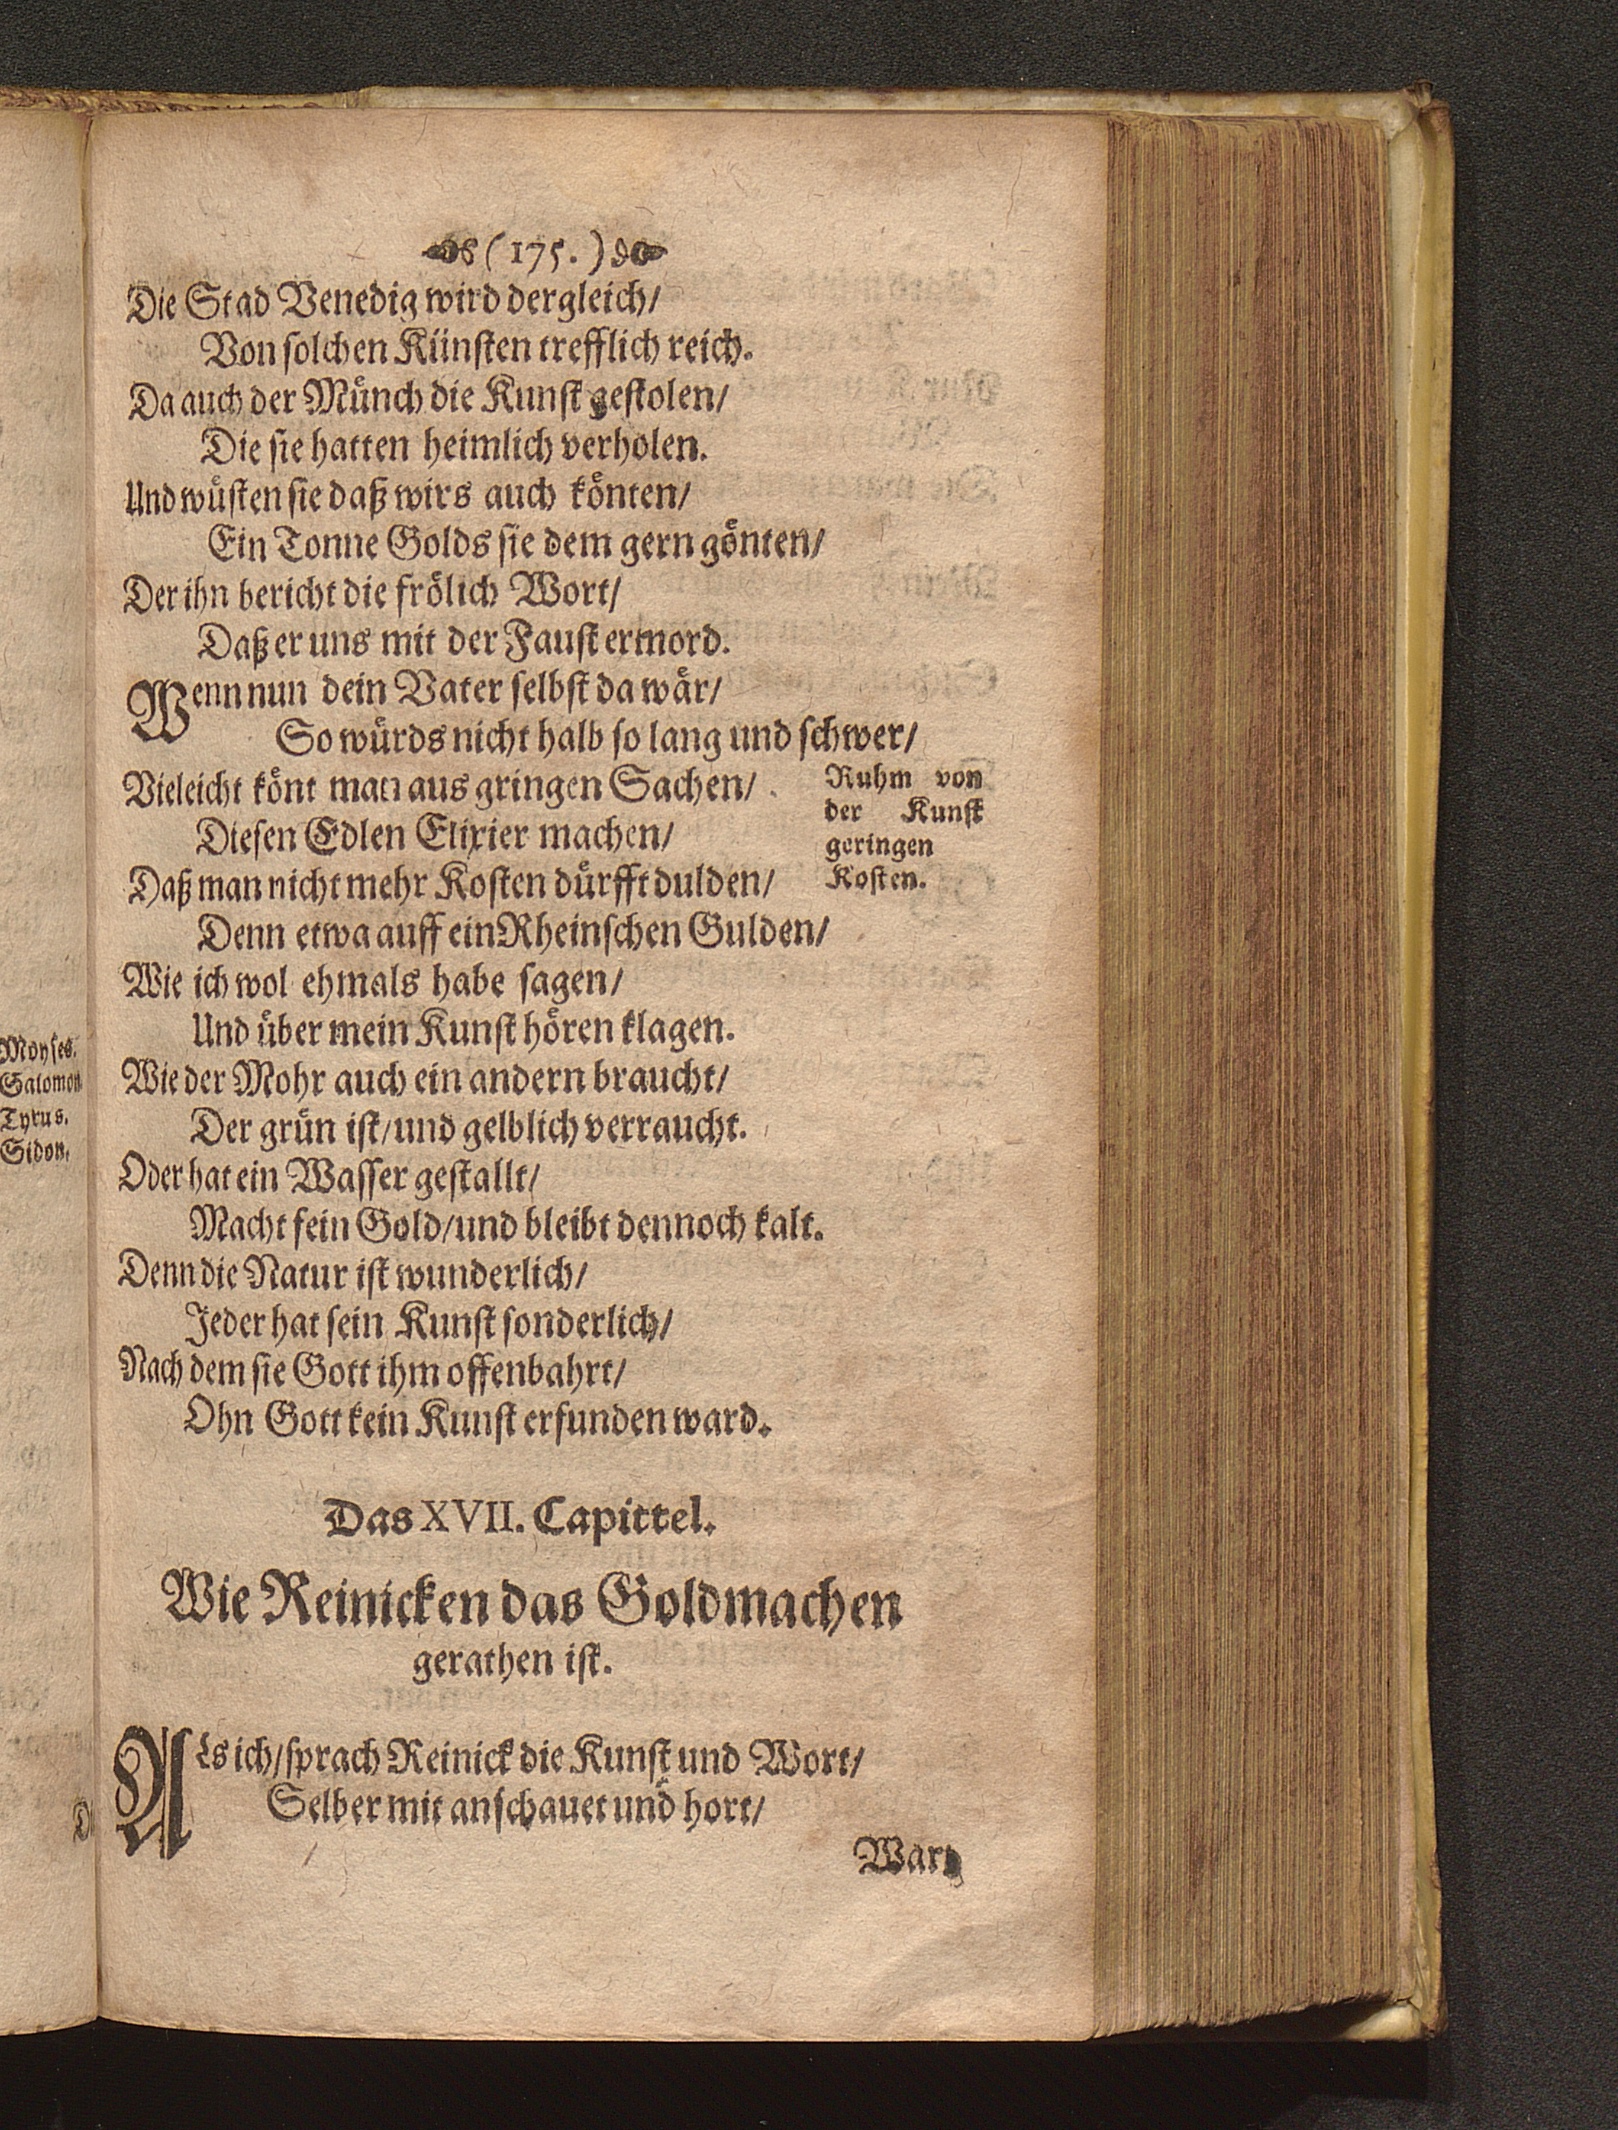 (175.)
Die Stad Venedig wird dergleich/
Von solchen Künsten trefflich reich.
Da auch der Münch die Kunst gestolen/
Die sie hatten heimlich verholen.
Und wüsten sie daß wirs auch könten/
Ein Tonne Golds sie dem gern gönten/
Der ihn bericht die frölich Wort/
Daß er uns mit der Faust ermord.
Wenn nun dein Vater selbst da wär/
So würds nicht halb so lang und schwer/
Vieleicht könt man aus gringen Sachen/
Diesen Edlen Elixier machen/
Daß man nicht mehr Kosten dürfft dulden/
Denn etwa auff ein Rheinschen Gulden/
Ruhm von
der Kunst
geringen
Kosten.
Wie ich wol ehmals habe sagen/
Und über mein Kunst hören klagen.
Wie der Mohr auch ein andern braucht/
Der grün ist/und gelblich verraucht.
Oder hat ein Wasser gestallt/
Macht fein Gold/und bleibt dennoch kalt.
Denn die Natur ist wunderlich/
Jeder hat sein Kunst sonderlich/
Nach dem sie Gott ihm offenbahrt/
Ohn Gott kein Kunst erfunden ward.
Das XVII. Capittel.
Wie Reinicken das Goldmachen
gerathen ist.
Als ich/sprach Reinick die Kunst und Wort/
Selber mit anschauet und hört/
War
Moyses.
Salomon
Tyrus.
Sidon.